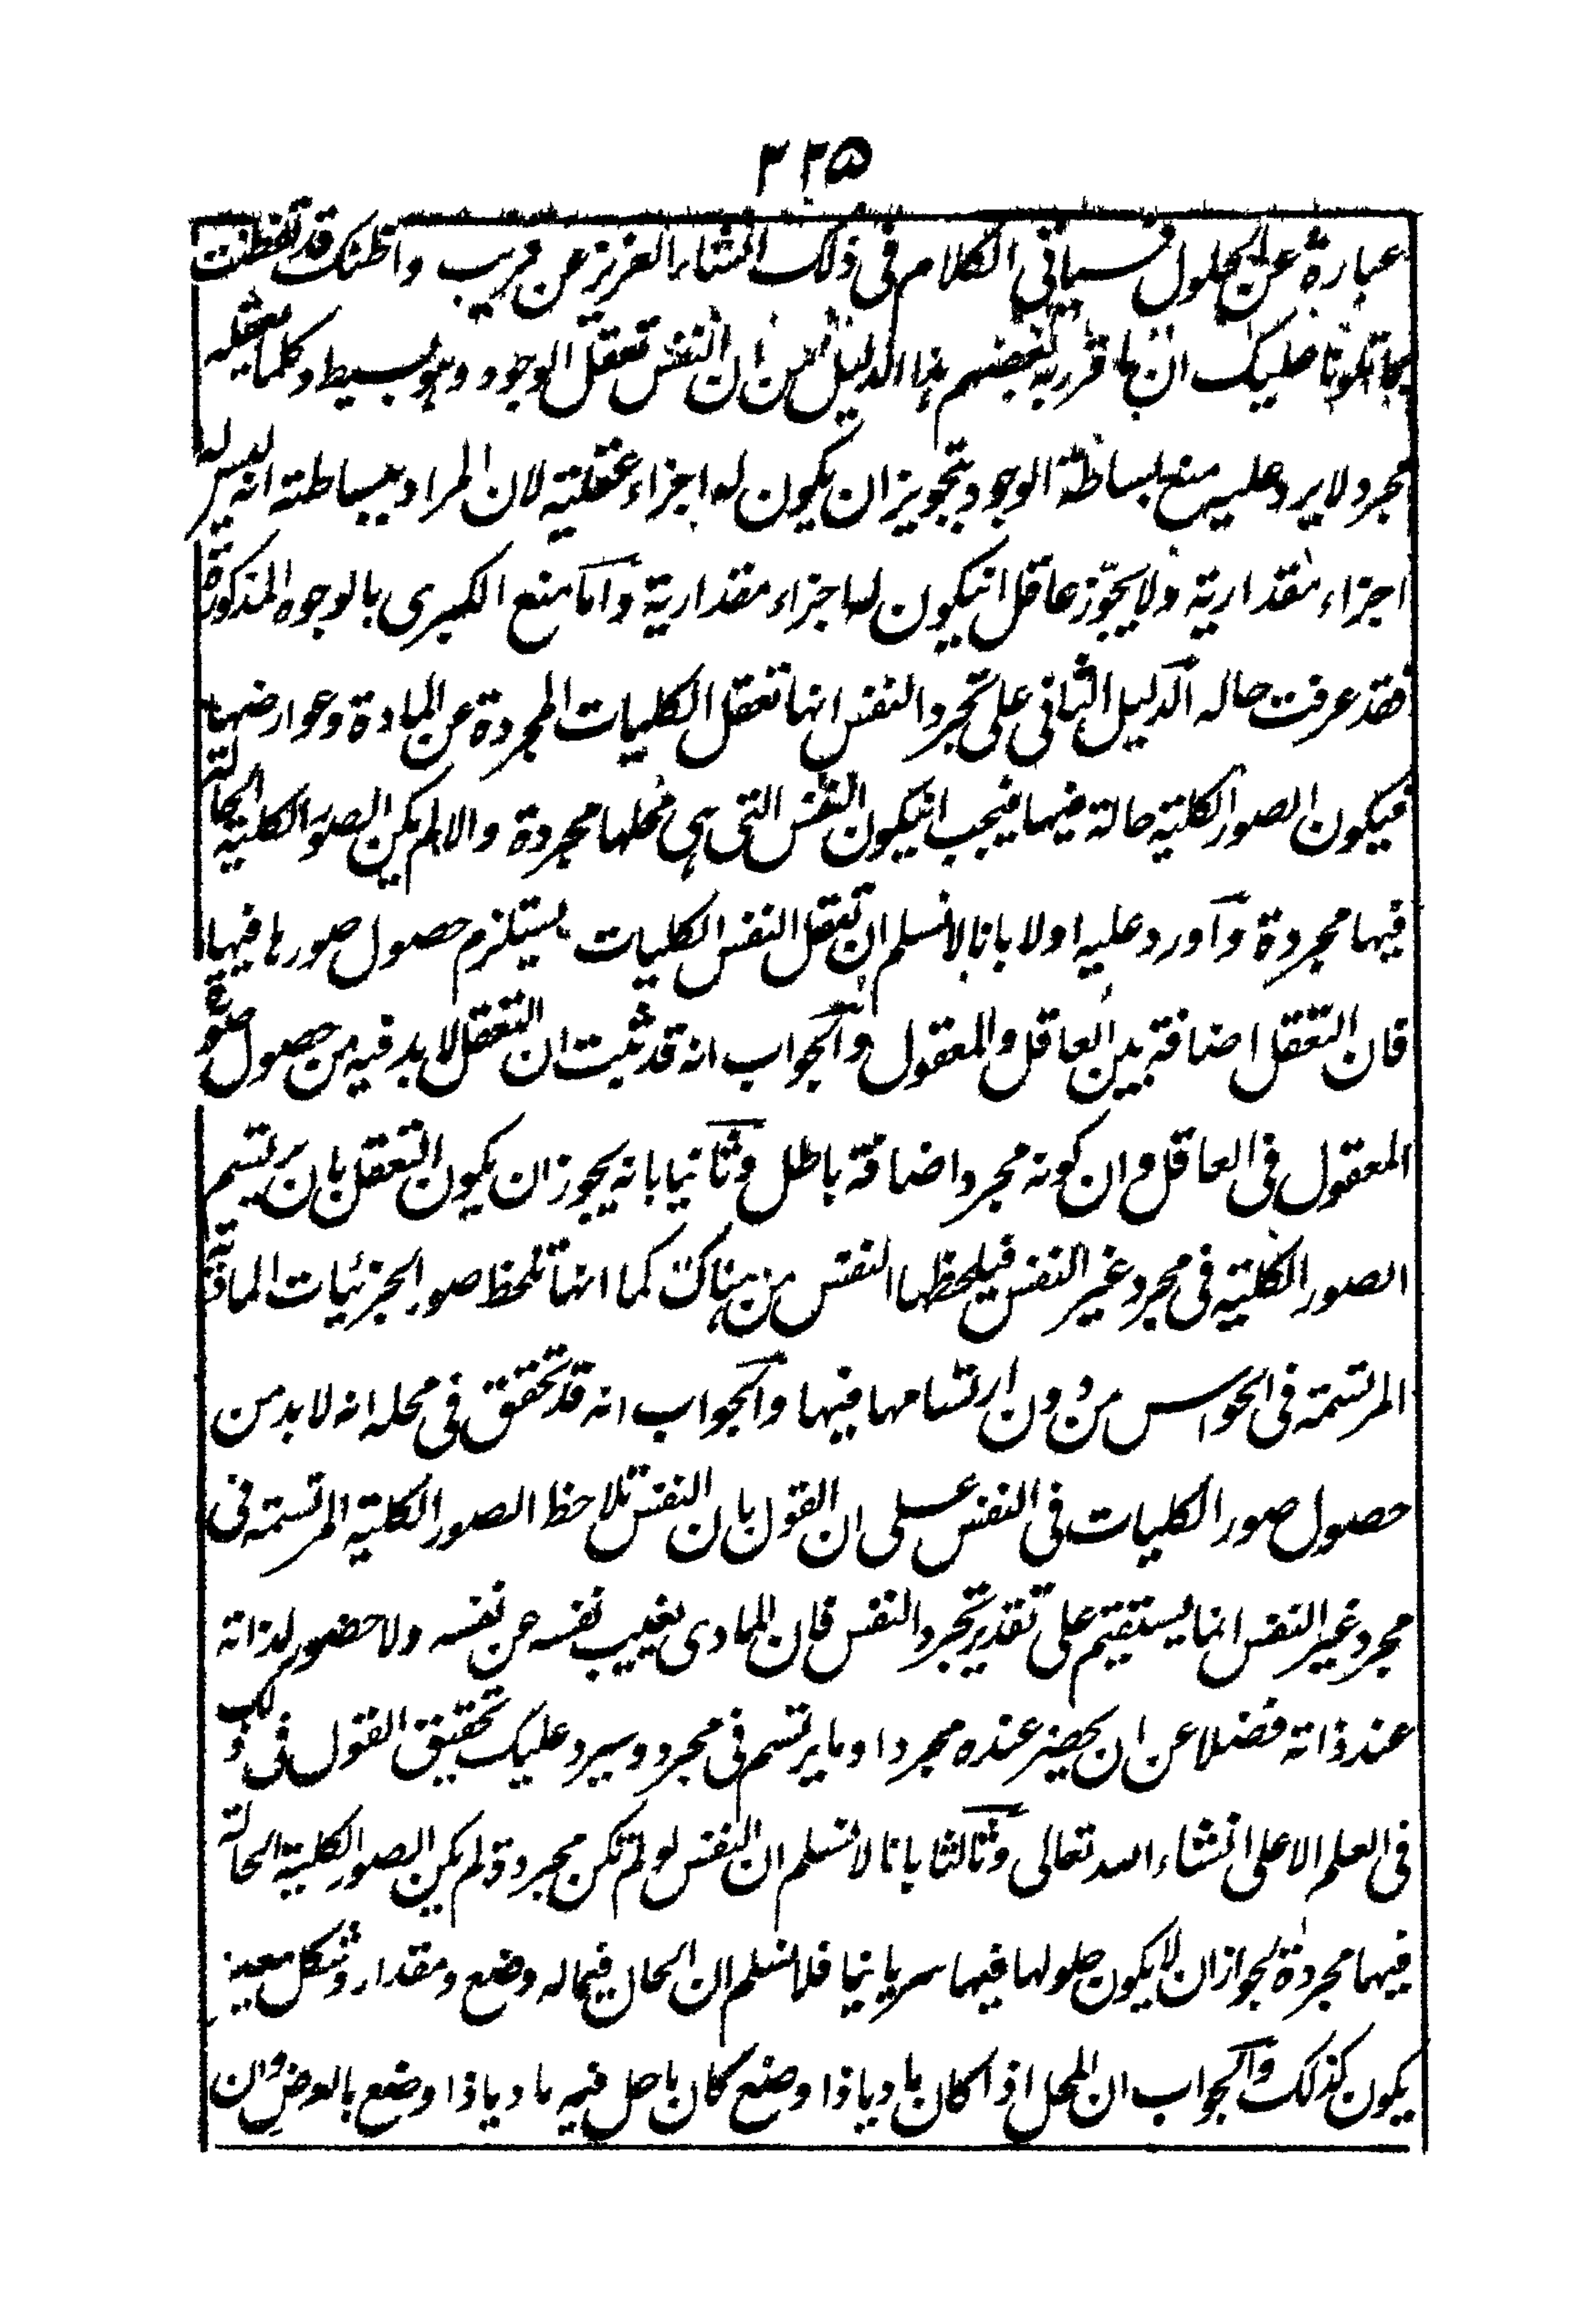 ٣٢٥
عبارة عن الحلول فسياتي الكلام في ذلك انشاء العزيز عن قريب واظنك قد تفطنت
بما تلونا عليك ان ما قرر به بعضهم هذا الدليل من ان النفس تعقل الوجود وهو بسيط وكلما يعقله
مجرد لا يرد عليه منع بساطة الوجود بتجويز ان يكون له اجزاء عقلية لان المراد ببساطته انه ليس له
اجزاء مقدارية ولا يجوّز عاقل انيكون له اجزاء مقدارية واما منع الكبرى بالوجوه المذكورة
فقد عرفت حاله الدليل الثاني على تجرد النفس انها تعقل الكليات المجردة عن المادة وعوارضها
فيكون الصور الكلية حالة فيها فيجب انيكون النفس التي هي محلها مجردة والا لم يكن الصور الكلية الحالة
فيها مجردة واورد عليه اولا بانا لا نسلم ان تعقل النفس الكليات يستلزم حصول صورها فيها
فان التعقل اضافة بين العاقل والمعقول والجواب انه قد ثبت ان التعقل لا بد فيه من حصول صورة
المعقول في العاقل وان كونه مجرد اضافة باطل وثانيا بانه يجوز ان يكون التعقل بان يرتسم
الصور الكلية في مجرد غير النفس فيلحظها النفس من هناك كما انها تلحظ صور الجزئيات المادية
المرتسمة في الحواس من دون ارتسامها فيها والجواب انه قد تحقق في محله انه لا بد من
حصول صور الكليات في النفس على ان القول بان النفس تلاحظ الصور الكلية المرتسمة في
مجرد غير النفس انما يستقيم على تقدير تجرد النفس فان المادى يغيب نفسه عن نفسه ولا حضور لذاته
عند ذاته فضلا عن ان يحضر عنده مجرد او ما يرتسم في مجرد وسيرد عليك تحقيق القول في ذلك
في العلم الاعلى انشاء الله تعالى وثالثا بانا لا نسلم ان النفس لو لم تكن مجردة لم يكن الصور الكلية الحالة
فيها مجردة لجواز ان لا يكون حلولها فيها سريانيا فلا نسلم ان الحال فيما له وضع ومقدار وشكل معين
يكون كذلك والجواب ان المحل اذا كان ماديا ذا وضع كان ما حل فيه ماديا ذا وضع بالعرض وان